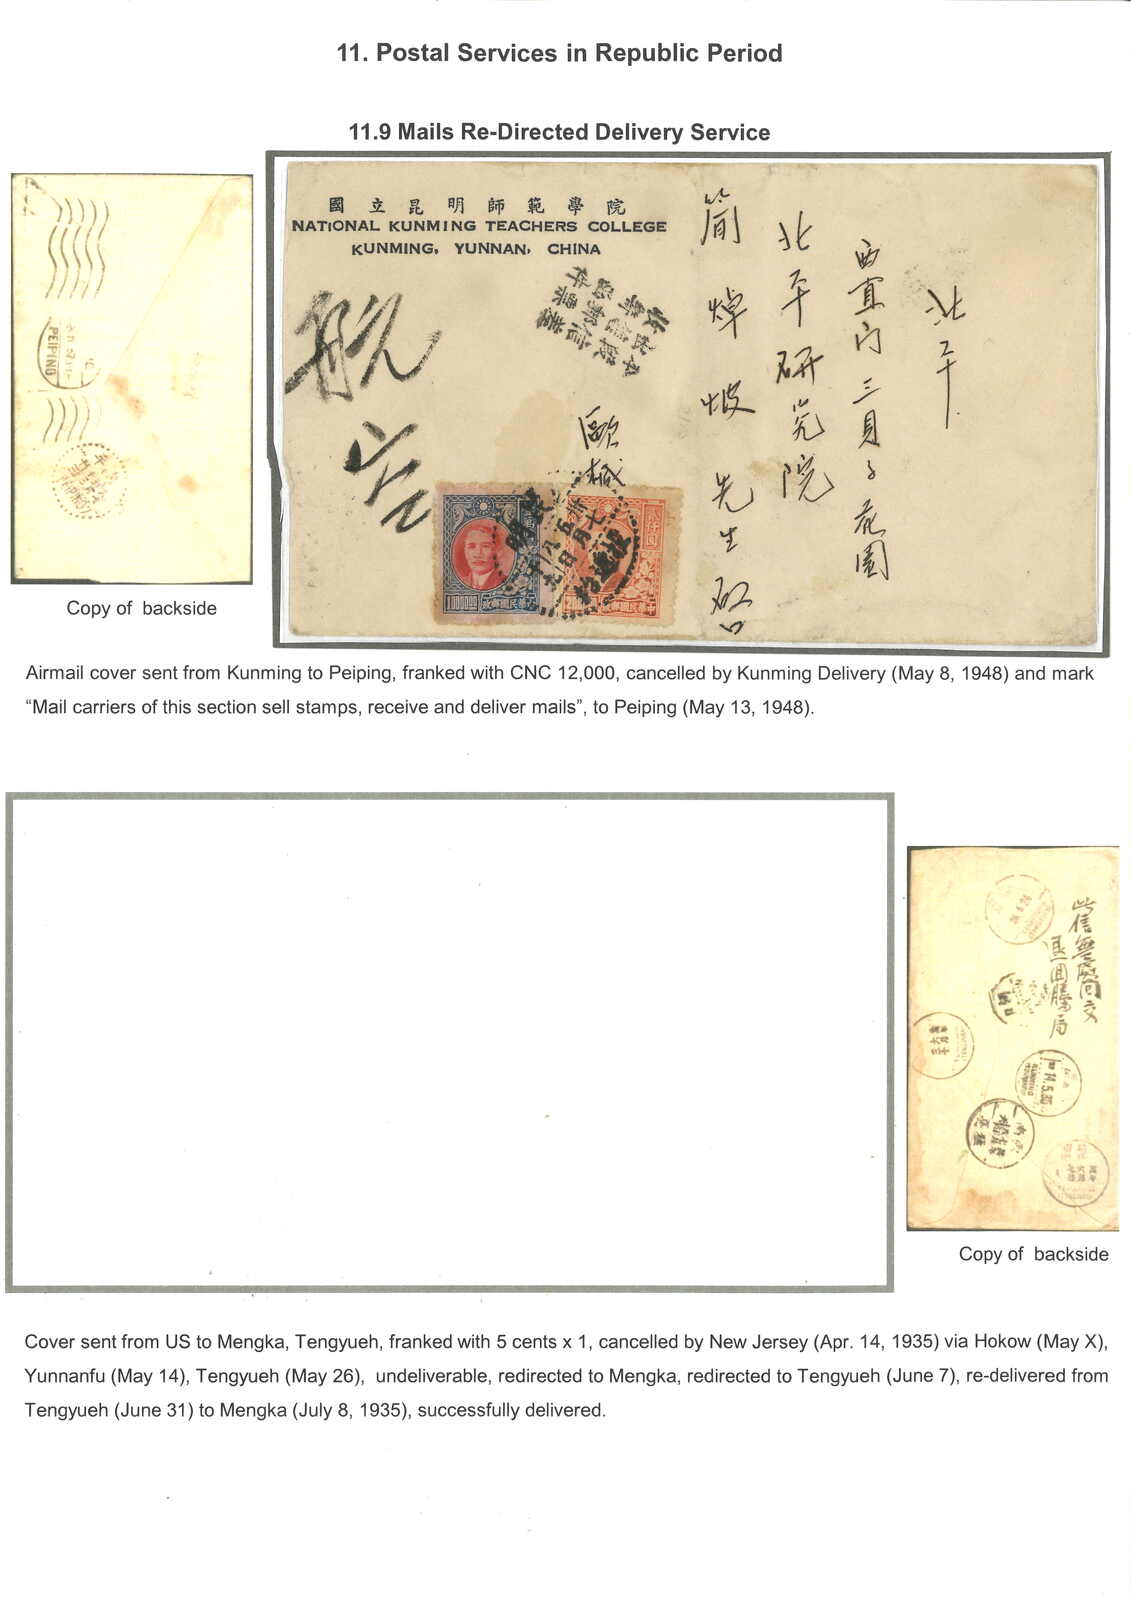 11. Postal Services in Republic Period
11.9 Mails Re-Directed Delivery Service
國立昆明師範學院
NATIONAL KUNMING TEACHERS COLLEGE
KUNMING, YUNNAN, CHINA
北平
西直門三貝子花園
北平研究院
簡焯坡先生啟
航空
PEIPING
Copy of backside
Airmail cover sent from Kunming to Peiping, franked with CNC 12,000, cancelled by Kunming Delivery (May 8, 1948) and mark
“Mail carriers of this section sell stamps, receive and deliver mails”, to Peiping (May 13, 1948).
此信無閆交
退回騰局
14.5.35
Copy of backside
Cover sent from US to Mengka, Tengyueh, franked with 5 cents x 1, cancelled by New Jersey (Apr. 14, 1935) via Hokow (May X),
Yunnanfu (May 14), Tengyueh (May 26), undeliverable, redirected to Mengka, redirected to Tengyueh (June 7), re-delivered from
Tengyueh (June 31) to Mengka (July 8, 1935), successfully delivered.